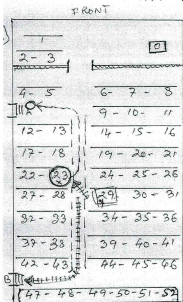 FRONT
1
2 - 3
D
4 - 5 6 - 7 - 8
9 - 10 - 11
12 - 13 14 - 15 - 16
17 - 18 19 - 20 - 21
22 - 23 24 - 25 - 26
27 - 28 29 - 30 - 31
32 - 33 34 - 35 - 36
37 - 38 39 - 40 - 41
42 - 43 44 - 45 - 46
B
47 - 48 - 49 - 50 - 51 - 52